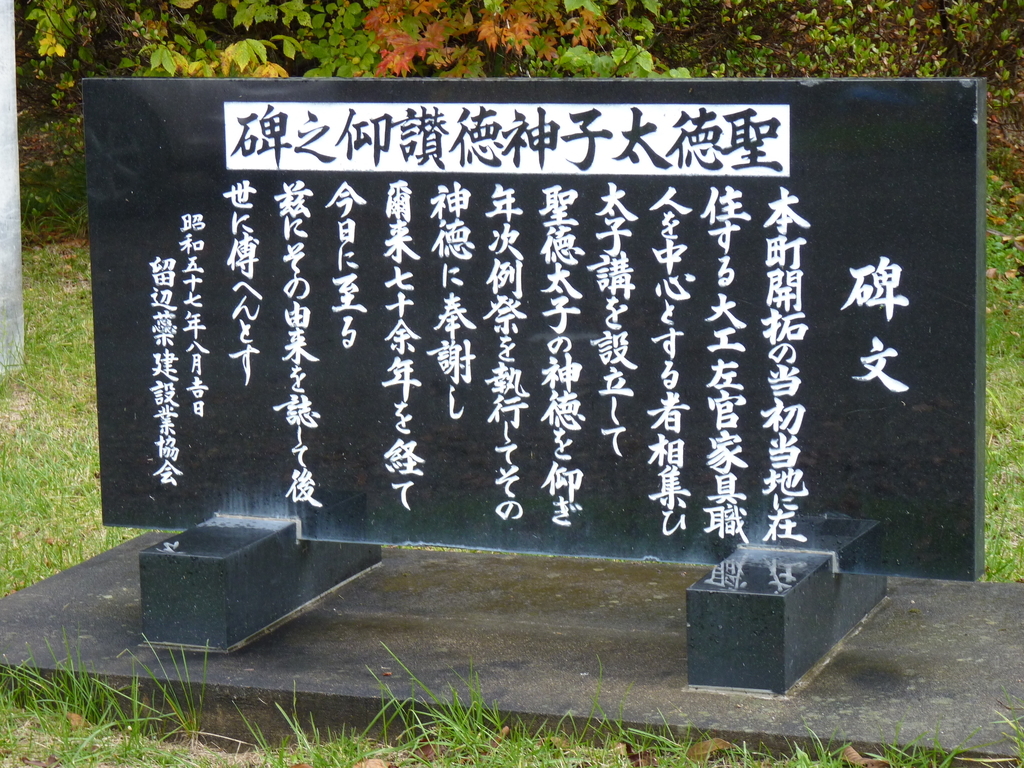 聖徳太子神徳讃仰之碑
碑文
本町開拓の当初当地に在
住する大工左官家具職
人を中心とする者相集ひ
太子講を設立して
聖徳太子の神徳を仰ぎ
年次例祭を執行してその
神徳に奉謝し
爾来七十余年を経て
今日に至る
茲にその由来を誌して後
世に傳へんとす
昭和五十七年八月吉日
留辺蘂建設業協会